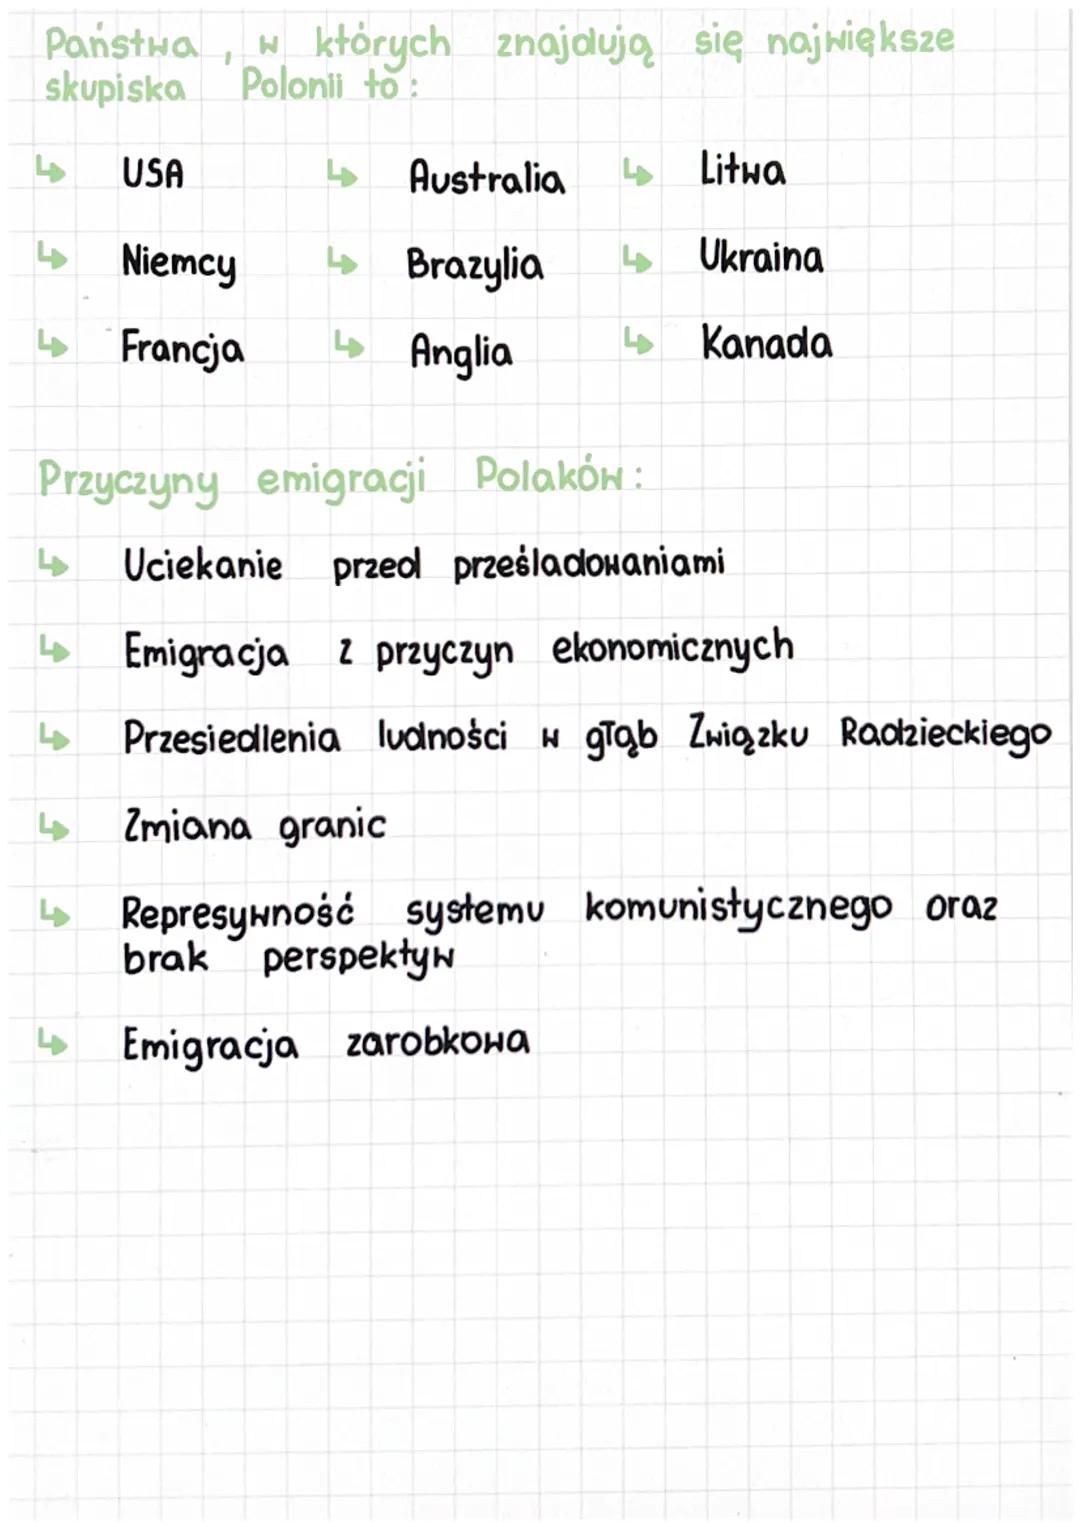 Państwa, w których znajdują się największe
skupiska Polonii to:
↳ USA ↳ Australia ↳ Litwa
↳ Niemcy ↳ Brazylia ↳ Ukraina
↳ Francja ↳ Anglia ↳ Kanada
Przyczyny emigracji Polaków:
↳ Uciekanie przed prześladowaniami
↳ Emigracja z przyczyn ekonomicznych
↳ Przesiedlenia ludności w głąb Związku Radzieckiego
↳ Zmiana granic
↳ Represywność systemu komunistycznego oraz
brak perspektyw
↳ Emigracja zarobkowa